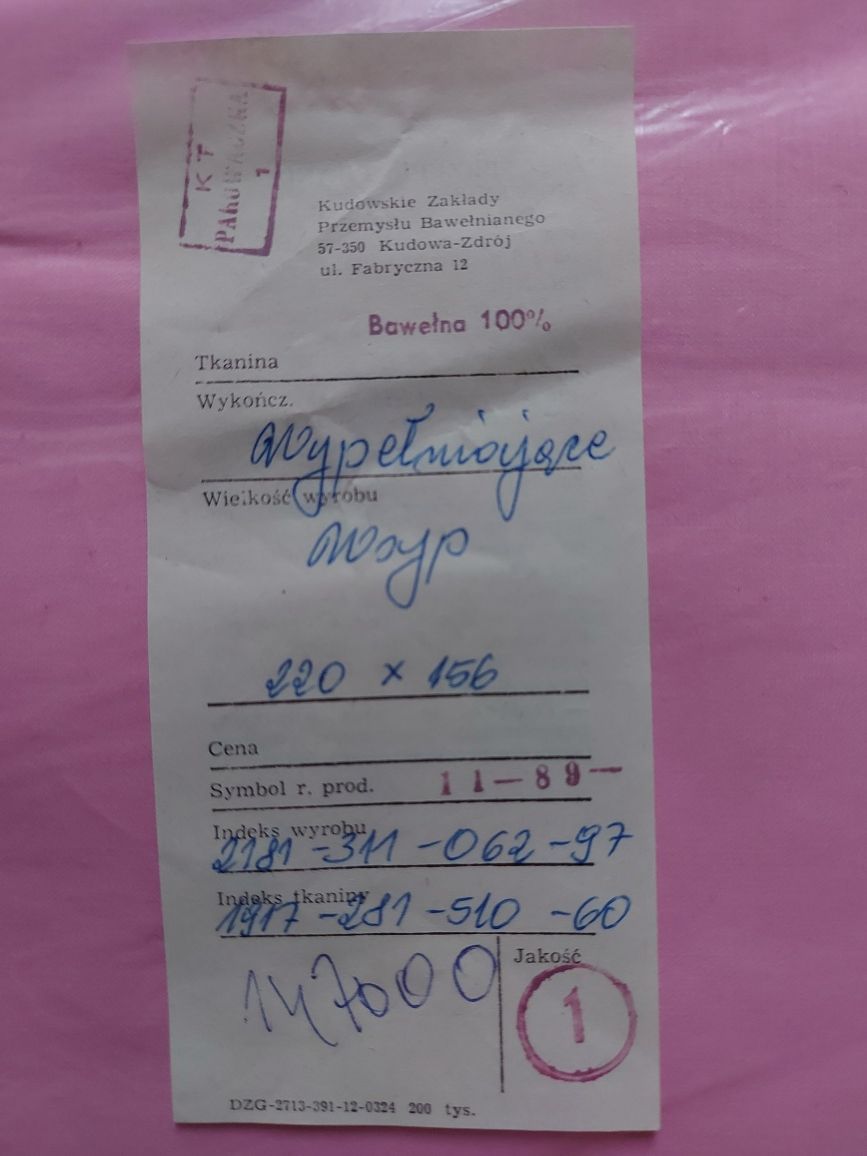 K T
PAKOWACZKA
1
Kudowskie Zakłady
Przemysłu Bawełnianego
57-350 Kudowa-Zdrój
ul. Fabryczna 12
Bawełna 100%
Tkanina
Wykończ.
Wypełniające
Wielkość wyrobu
Wsyp
220 x 156
Cena
Symbol r. prod. 11-89-
Indeks wyrobu
2181-311-062-97
Indeks tkaniny
1917-281-510-60
147000
Jakość
1
DZG-2713-391-12-0324 200 tys.